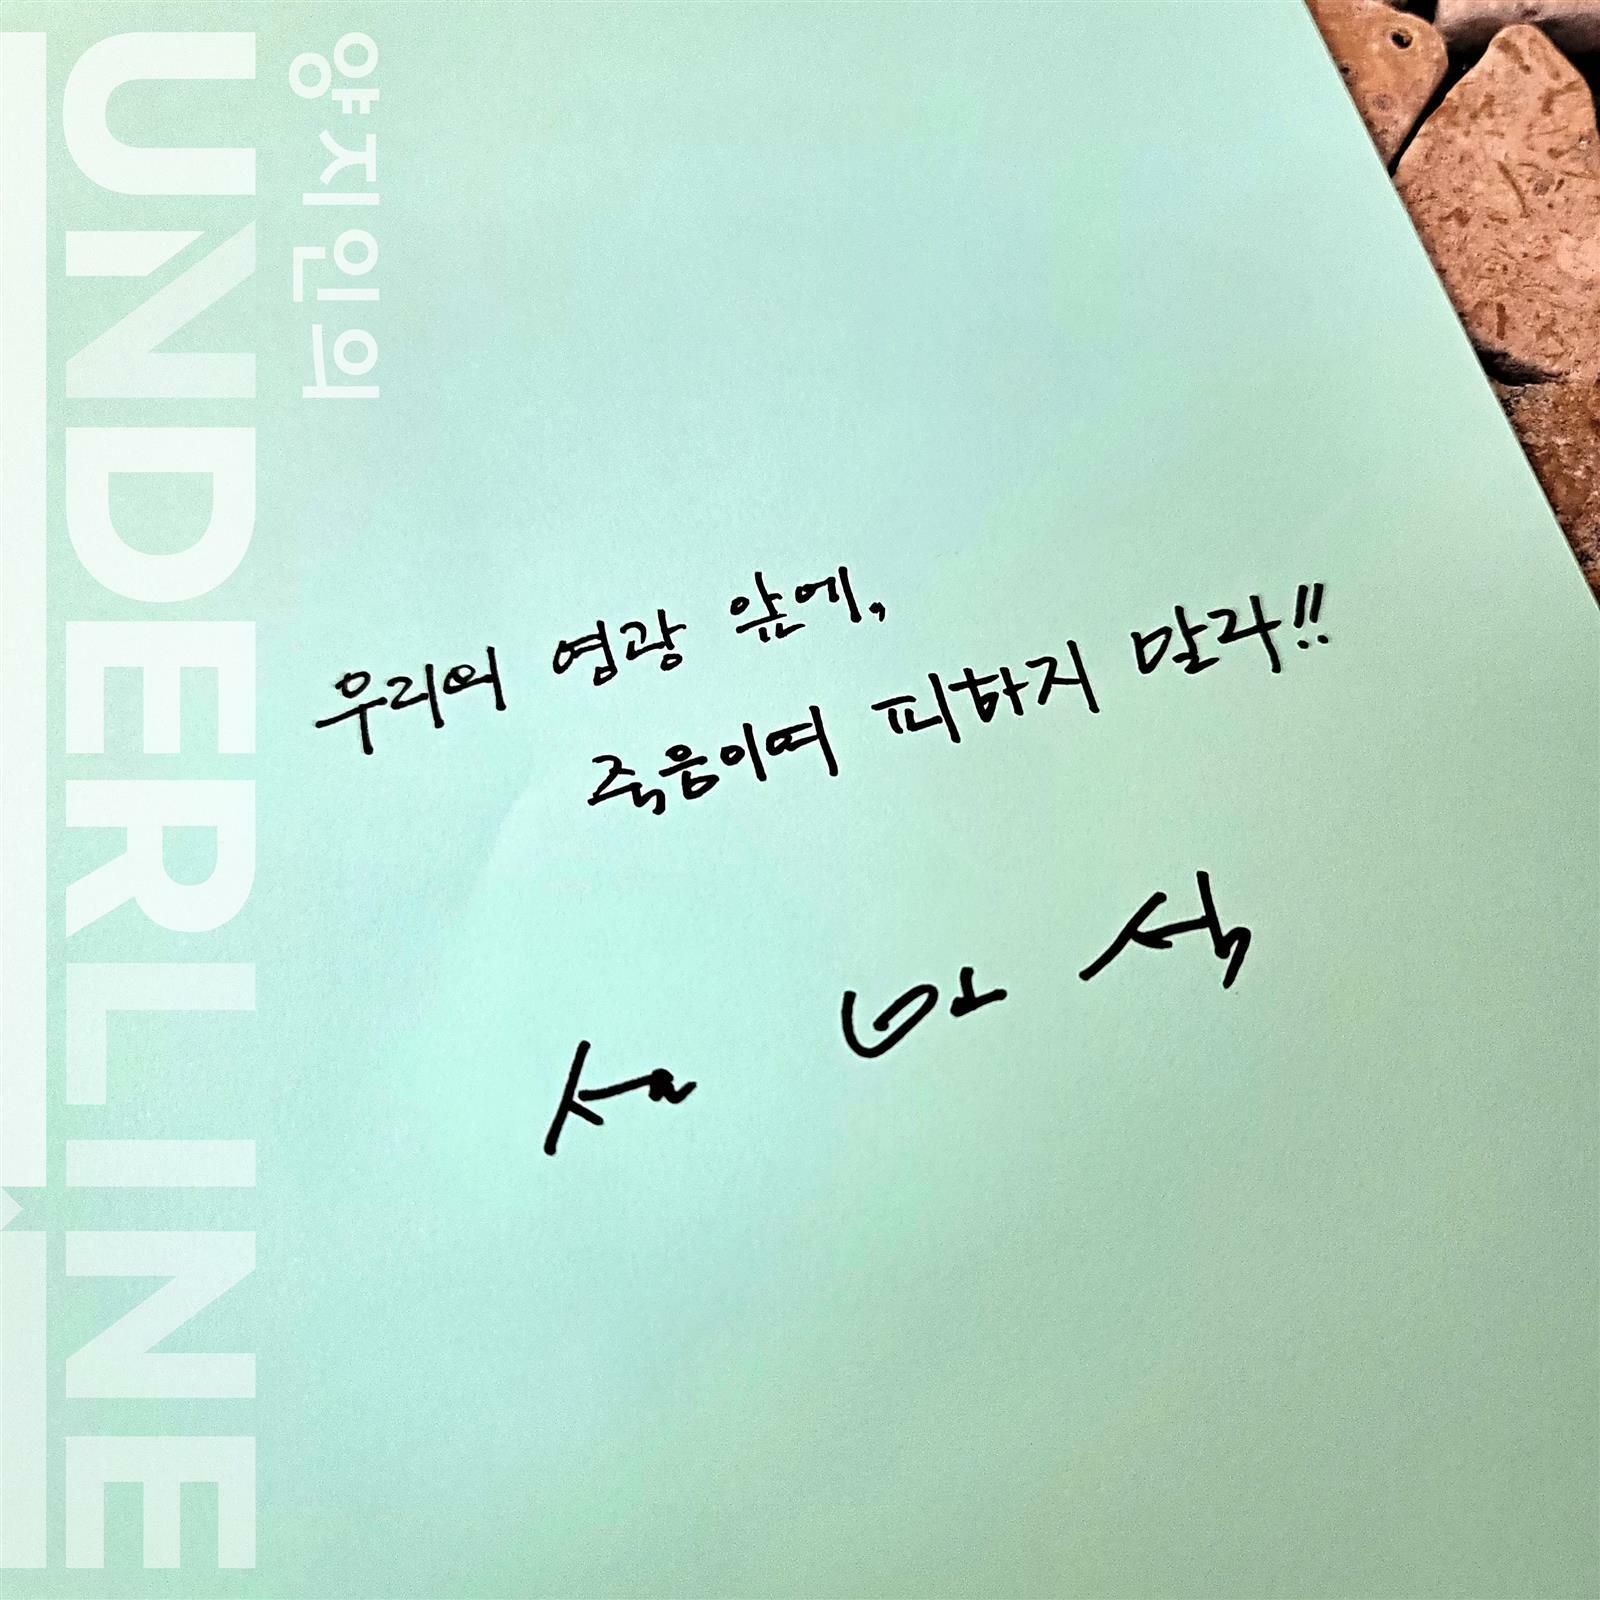 양지인의
UNDERLINE
우리의 영광 앞에,
죽음이여 피하지 말라!!